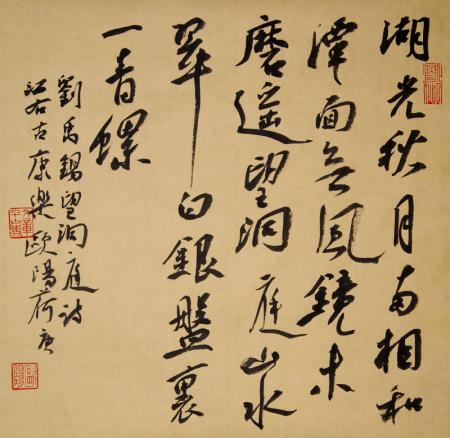 湖光秋月両相和
潭面無風鏡未
磨遥望洞庭山水
翠白銀盤裏
一青螺
劉禹錫望洞庭詩
江右古康樂歐陽荷庚